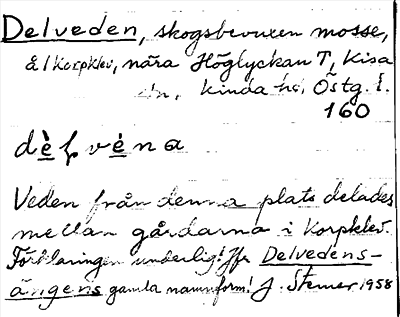 Delveden, skogsbevuxen mosse,
å 1 Korpklev, nära Höglyckan T, Kisa
sn, Kinda hd, Östg. l.
160
dèlvèna
Veden från denna plats delades
mellan gårdarna i Korpklev.
Förklaringen underlig! Jfr Delvedens-
ängens gamla namnform! J. 1958